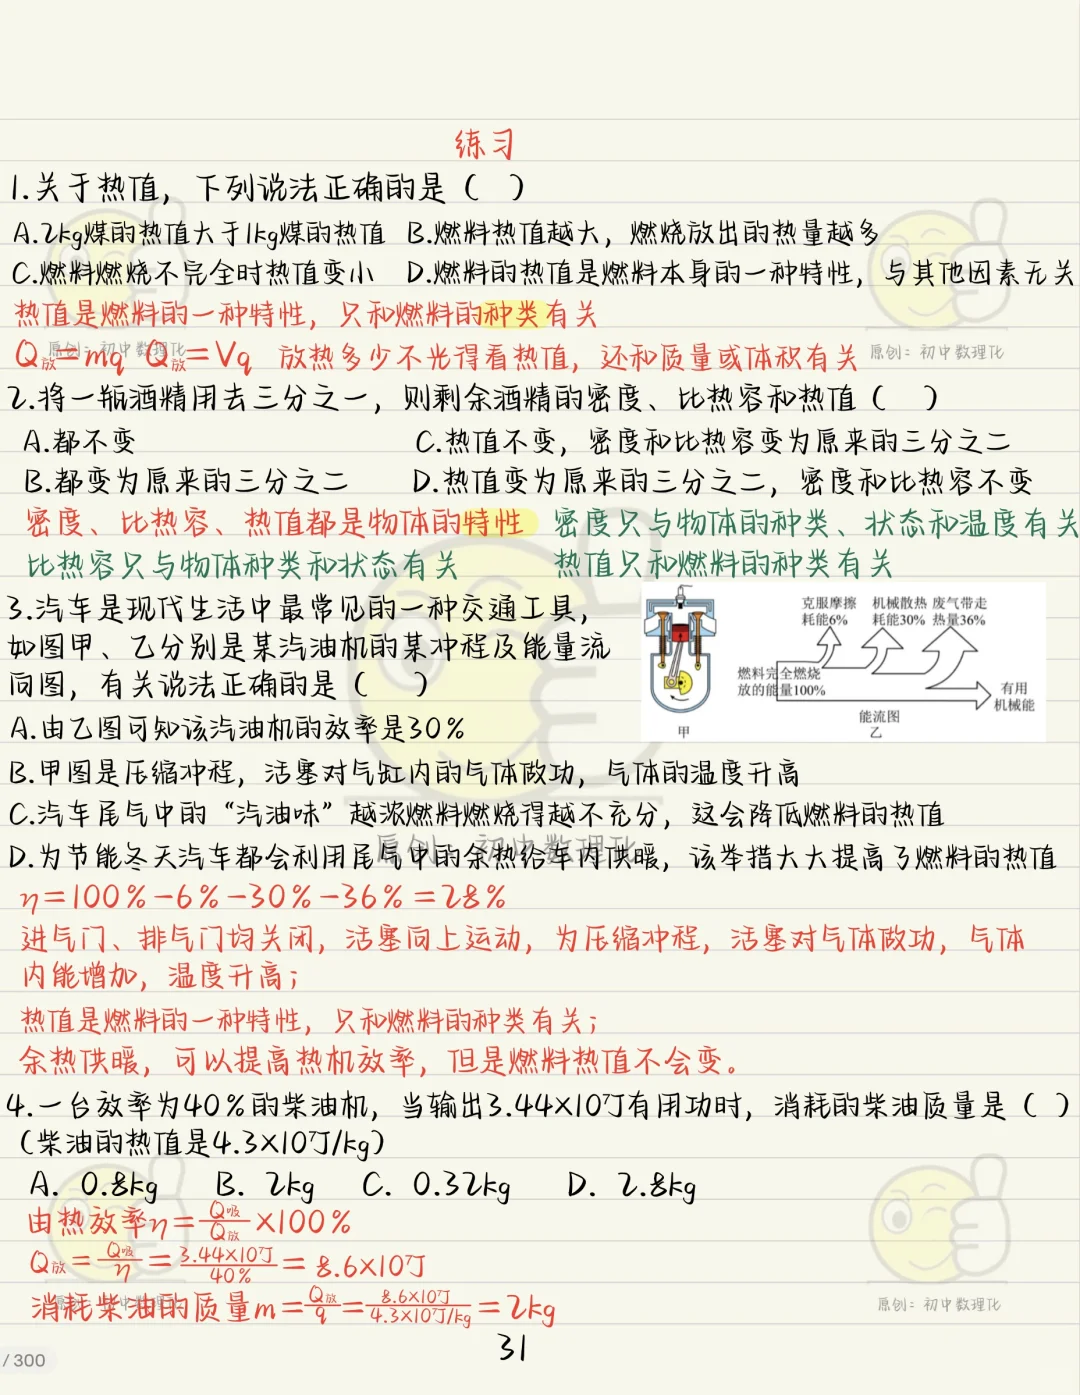 练习
1.关于热值，下列说法正确的是（ ）
A.2kg煤的热值大于1kg煤的热值 B.燃料热值越大，燃烧放出的热量越多
C.燃料燃烧不完全时热值变小 D.燃料的热值是燃料本身的一种特性，与其他因素无关
热值是燃料的一种特性，只和燃料的种类有关
Q放=mq Q放=Vq 放热多少不光得看热值，还和质量或体积有关
原创：初中数理化
原创：初中数理化
2.将一瓶酒精用去三分之一，则剩余酒精的密度、比热容和热值（ ）
A.都不变 C.热值不变，密度和比热容变为原来的三分之二
B.都变为原来的三分之二 D.热值变为原来的三分之二，密度和比热容不变
密度、比热容、热值都是物体的特性 密度只与物体的种类、状态和温度有关
比热容只与物体种类和状态有关 热值只和燃料的种类有关
3.汽车是现代生活中最常见的一种交通工具，
如图甲、乙分别是某汽油机的某冲程及能量流
向图，有关说法正确的是（ ）
克服摩擦 机械散热 废气带走
耗能6% 耗能30% 热量36%
燃料完全燃烧
放的能量100%
有用
机械能
能流图
甲 乙
A.由乙图可知该汽油机的效率是30%
B.甲图是压缩冲程，活塞对气缸内的气体做功，气体的温度升高
C.汽车尾气中的“汽油味”越浓燃料燃烧得越不充分，这会降低燃料的热值
原创：初中数理化
D.为节能冬天汽车都会利用尾气中的余热给车内供暖，该举措大大提高了燃料的热值
η=100%-6%-30%-36%=28%
进气门、排气门均关闭，活塞向上运动，为压缩冲程，活塞对气体做功，气体
内能增加，温度升高；
热值是燃料的一种特性，只和燃料的种类有关；
余热供暖，可以提高热机效率，但是燃料热值不会变。
4.一台效率为40%的柴油机，当输出3.44×10⁷J有用功时，消耗的柴油质量是（ ）
（柴油的热值是4.3×10⁷J/kg）
A. 0.8kg B. 2kg C. 0.32kg D. 2.8kg
由热效率η=Q吸/Q放×100%
Q放=Q吸/η=3.44×10⁷J/40%=8.6×10⁷J
消耗柴油的质量m=Q放/q=8.6×10⁷J/4.3×10⁷J/kg=2kg
原创：初中数理化
原创：初中数理化
31
/ 300